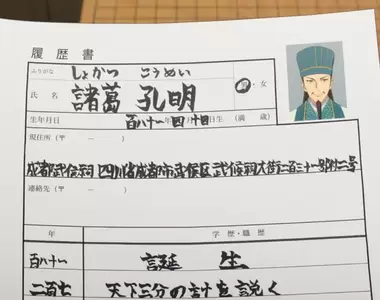 履歴書
ふりがな しょかつ こうめい
氏名 諸葛 孔明 男・女
生年月日 百八十一 四 十日生 (満 歳)
現住所 (〒 ー )
成都武侯祠 四川省成都市武侯区武侯祠大街二百三十一号附二号
連絡先 (〒 ー )
年 学歴・職歴
百八十一 誕生
二百七 天下三分の計を説く